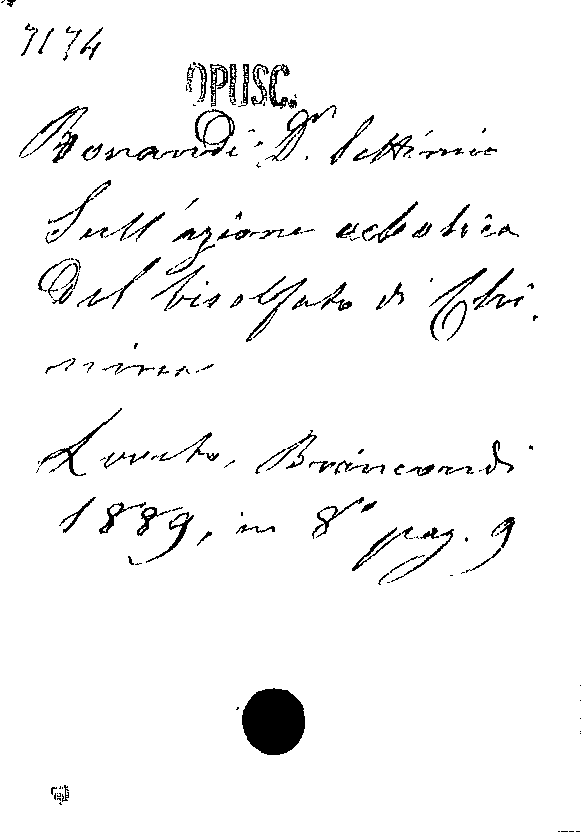 7174
OPUSC.
Bonandi Dr. Settimio
Sull'azione ecbolica
Del bisolfato di Chi-
nina
Loreto, Brancondi
1889, in 8° pag. 9